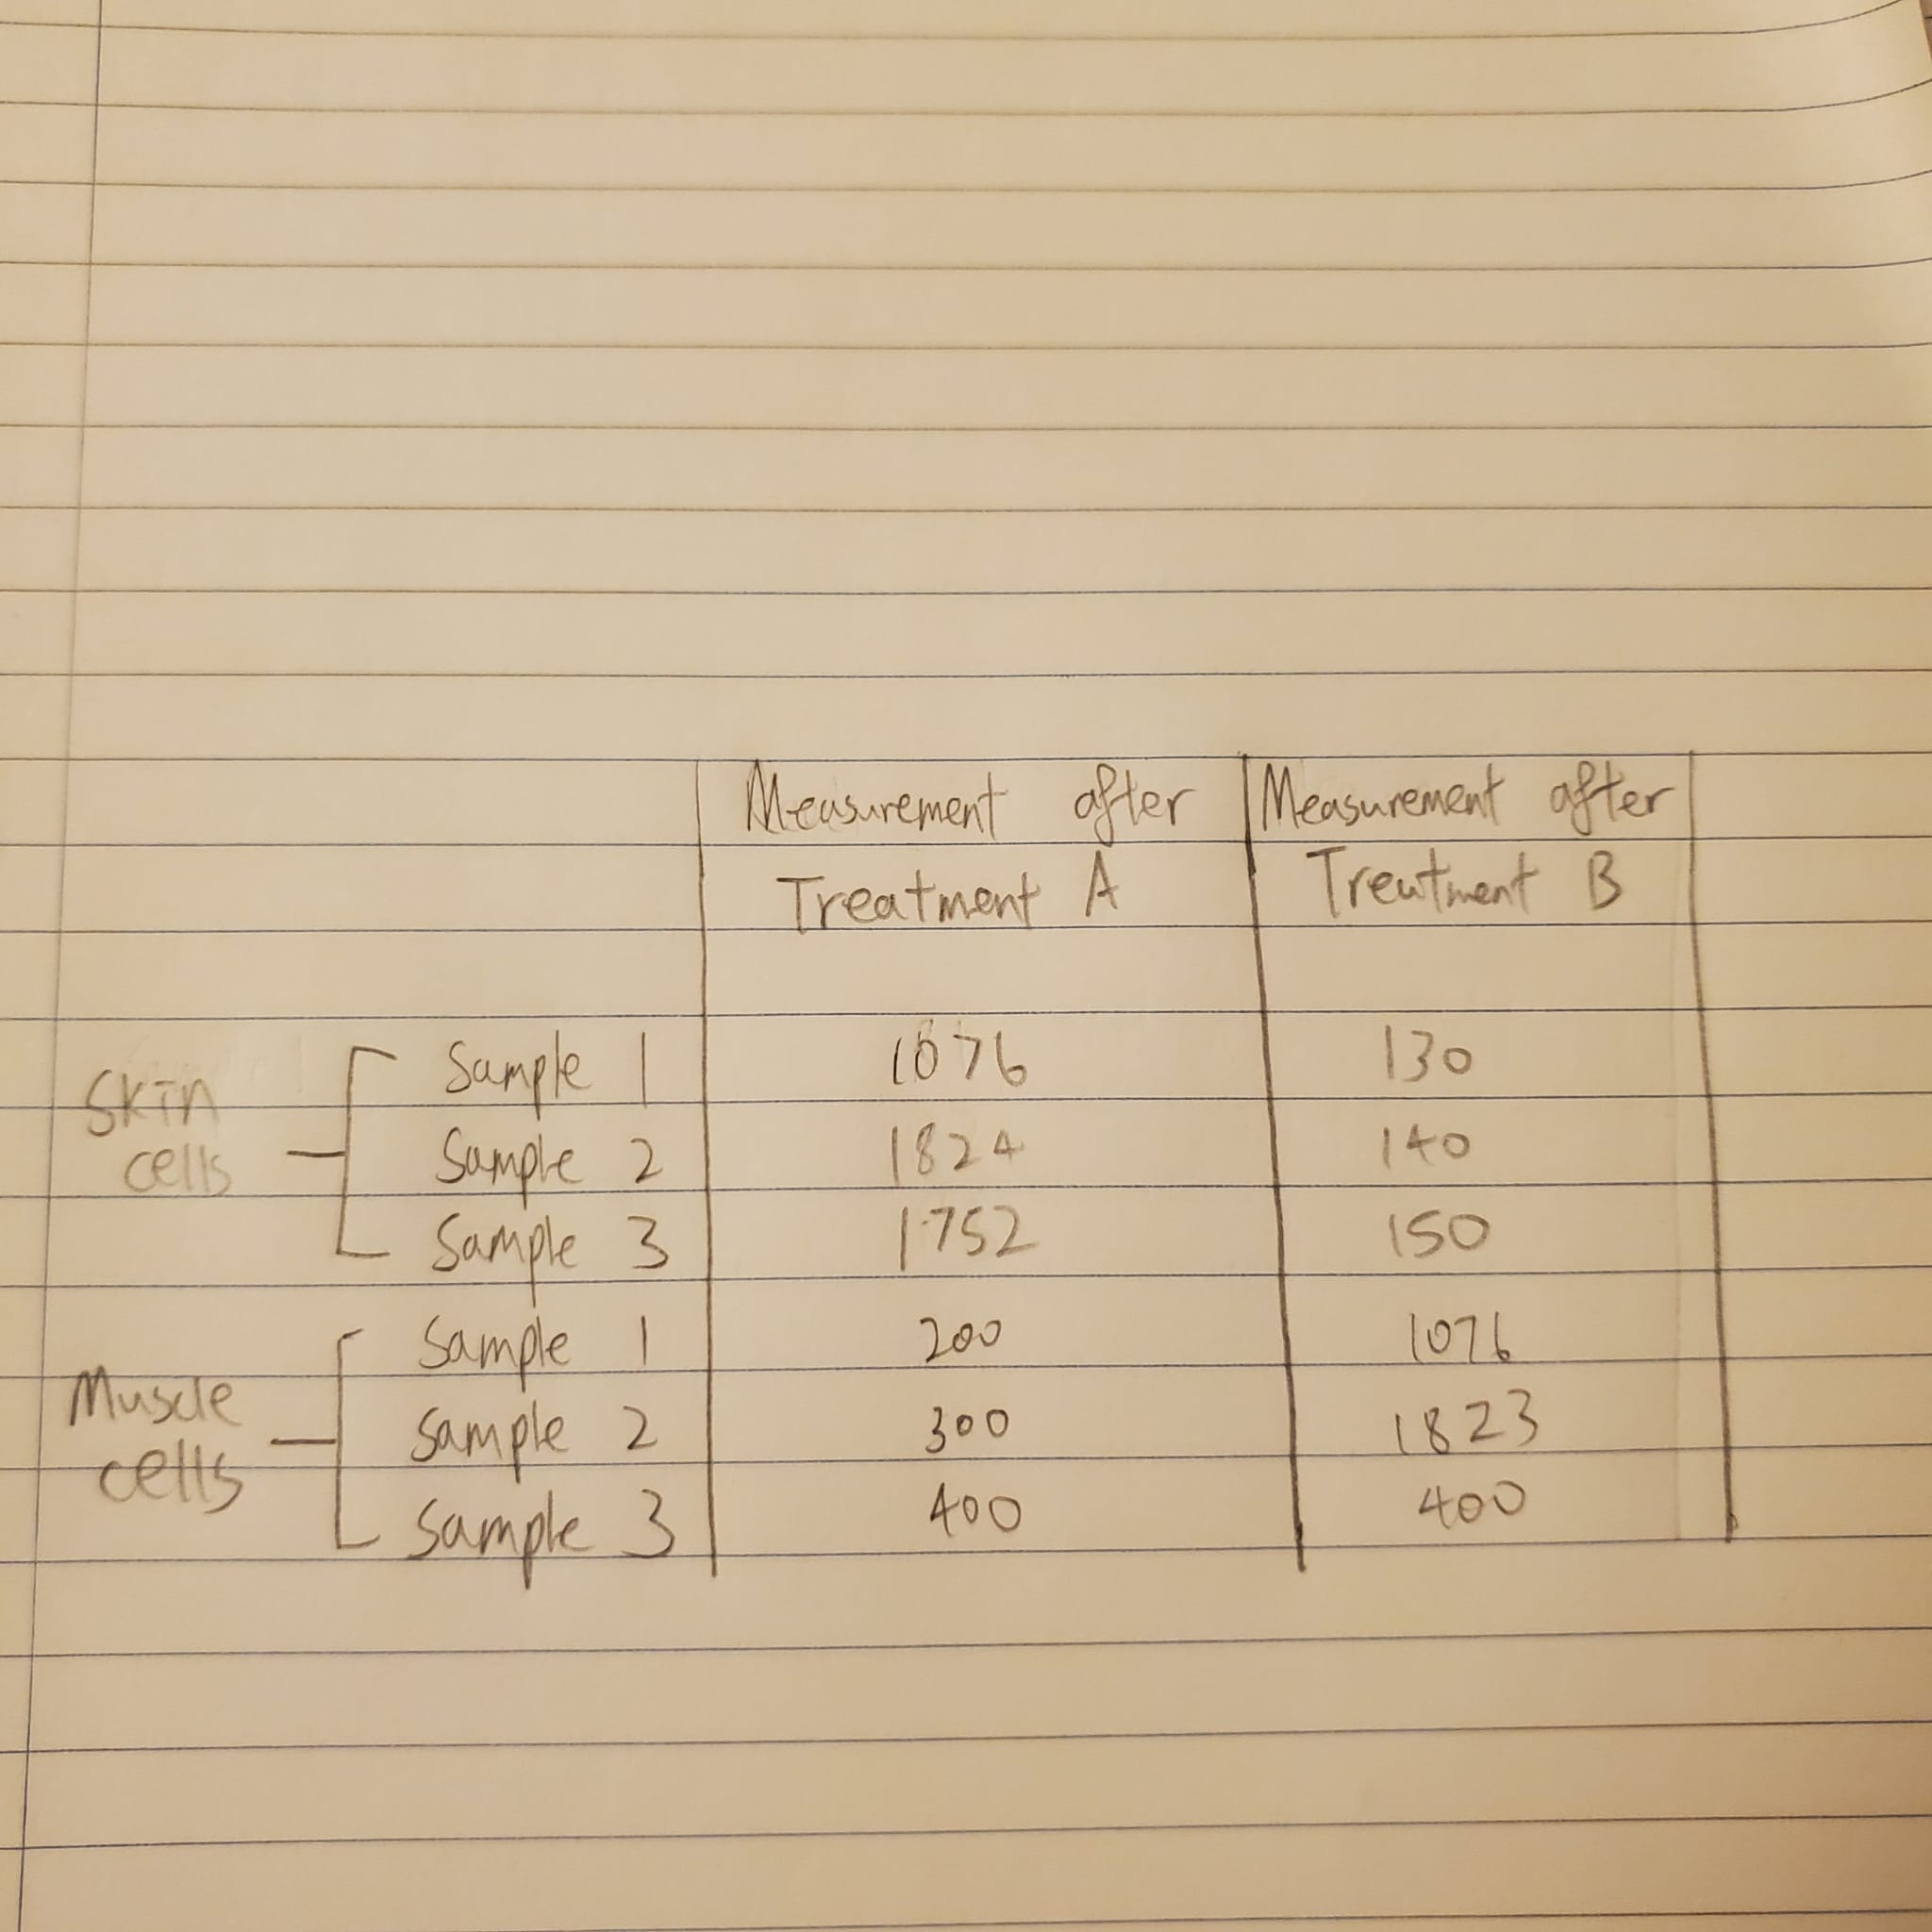 Measurement after Measurement after
Treatment A Treatment B
Sample 1 1076 130
Skin
Sample 2 1824 140
cells
Sample 3 1752 150
Sample 1 200 1076
Muscle
Sample 2 300 1823
cells
Sample 3 400 400